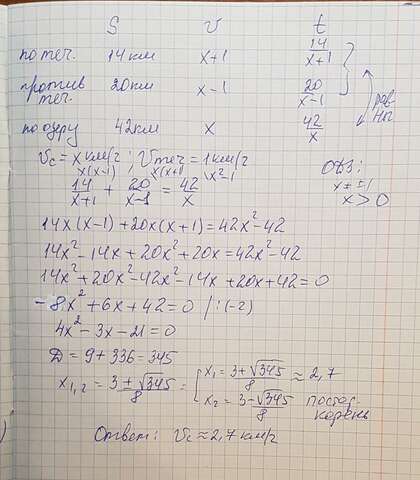 S v t
по теч. 14 км x+1 14/(x+1)
против теч. 20 км x-1 20/(x-1)
по озеру 42 км x 42/x
рав-ны
Vc = x км/ч ; Vтеч = 1 км/ч
ОДЗ:
x ≠ ±1
x > 0
x(x-1) x(x+1) x²-1
14/(x+1) + 20/(x-1) = 42/x
14x(x-1)+20x(x+1)=42x²-42
14x²-14x+20x²+20x=42x²-42
14x²+20x²-42x²-14x+20x+42=0
-8x²+6x+42=0 /:(-2)
4x²-3x-21=0
D=9+336=345
x1,2 = (3±√345)/8 = { x1 = (3+√345)/8 ≈ 2,7
x2 = (3-√345)/8 постор. корень
Ответ: Vc ≈ 2,7 км/ч